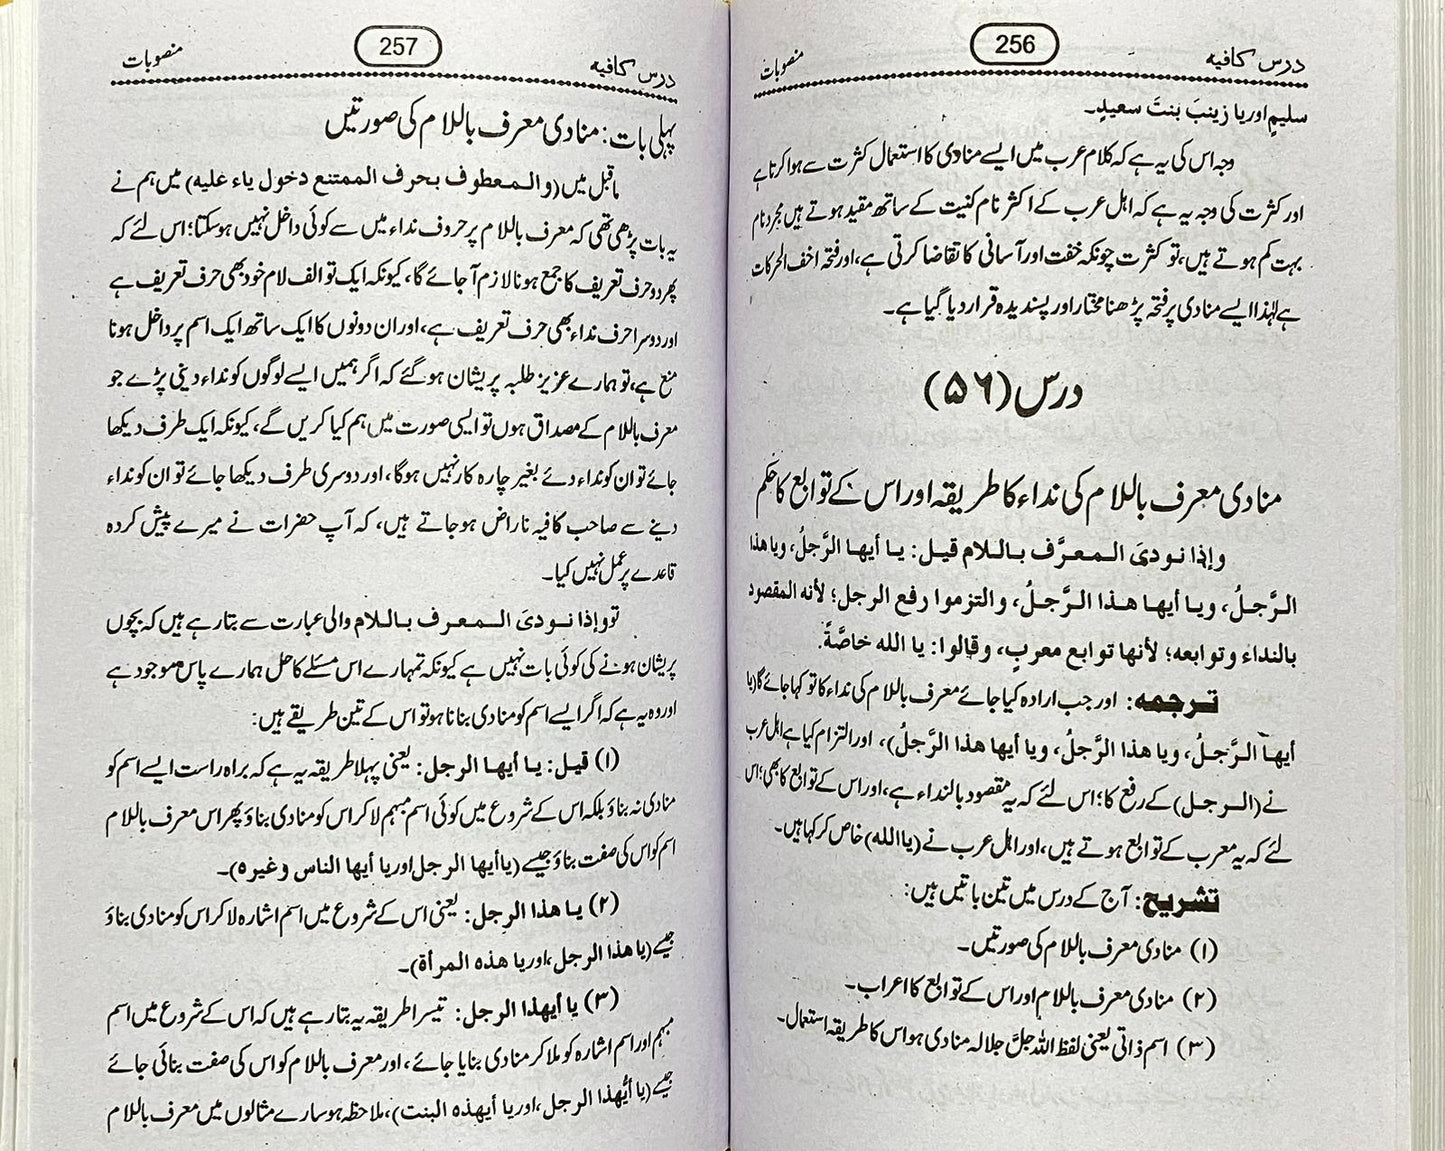 درس کافیہ
256
منصوبات
سلیمٍ اور یا زینبَ بنتَ سعیدٍ۔
وجہ اس کی یہ ہے کہ کلام عرب میں ایسے منادی کا استعمال کثرت سے ہوا کرتا ہے
اور کثرت کی وجہ یہ ہے کہ اہل عرب کے اکثر نام کنیت کے ساتھ مقید ہوتے ہیں مجرد نام
بہت کم ہوتے ہیں، تو کثرت چونکہ خفت اور آسانی کا تقاضا کرتی ہے، اور فتحہ اخف الحرکات
ہے لہٰذا ایسے منادی پر فتحہ پڑھنا مختار اور پسندیدہ قرار دیا گیا ہے۔
درس (۵۶)
منادی معرف باللام کی نداء کا طریقہ اور اس کے توابع کا حکم
وإذا نودیَ المعرَّف باللام قیل: یا أیها الرَّجلُ، ویا هذا
الرَّجلُ، ویا أیها هذا الرَّجلُ، والتزموا رفع الرجل؛ لأنه المقصود
بالنداء وتوابعه؛ لأنها توابع معربٍ، وقالوا: یا الله خاصَّةً.
ترجمہ: اور جب ارادہ کیا جائے معرف باللام کی نداء کا تو کہا جائے گا (یا
أیها الرَّجلُ، ویا هذا الرَّجلُ، ویا أیها هذا الرَّجلُ)، اور التزام کیا ہے اہل عرب
نے (الرجل) کے رفع کا؛ اس لئے کہ یہ مقصود بالنداء ہے، اور اس کے توابع کا بھی؛ اس
لئے کہ یہ معرب کے توابع ہوتے ہیں، اور اہل عرب نے (یا الله) خاص کر کہا ہیں۔
تشریح: آج کے درس میں تین باتیں ہیں:
(۱) منادی معرف باللام کی صورتیں۔
(۲) منادی معرف باللام اور اس کے توابع کا اعراب۔
(۳) اسم ذاتی یعنی لفظ اللہ جلَّ جلالہ منادی ہو اس کا طریقہ استعمال۔
درس کافیہ
257
منصوبات
پہلی بات: منادی معرف باللام کی صورتیں
ماقبل میں (والمعطوف بحرف الممتنع دخول یاء علیه) میں ہم نے
یہ بات پڑھی تھی کہ معرف باللام پر حروف نداء میں سے کوئی داخل نہیں ہو سکتا؛ اس لئے کہ
پھر دو حرف تعریف کا جمع ہونا لازم آ جائے گا، کیونکہ ایک تو الف لام خود بھی حرف تعریف ہے
اور دوسرا حرف نداء بھی حرف تعریف ہے، اور ان دونوں کا ایک ساتھ ایک اسم پر داخل ہونا
منع ہے، تو ہمارے عزیز طلبہ پریشان ہو گئے کہ اگر ہمیں ایسے لوگوں کو نداء دینی پڑے جو
معرف باللام کے مصداق ہوں تو ایسی صورت میں ہم کیا کریں گے، کیونکہ ایک طرف دیکھا
جائے تو ان کو نداء دئے بغیر چارہ کار نہیں ہوگا، اور دوسری طرف دیکھا جائے تو ان کو نداء
دینے سے صاحب کافیہ ناراض ہو جاتے ہیں، کہ آپ حضرات نے میرے پیش کردہ
قاعدے پر عمل نہیں کیا۔
تو وإذا نودیَ المعرف باللام والی عبارت سے بتا رہے ہیں کہ بچوں
پریشان ہونے کی کوئی بات نہیں ہے کیونکہ تمہارے اس مسئلے کا حل ہمارے پاس موجود ہے
اور وہ یہ ہے کہ اگر ایسے اسم کو منادی بنانا ہو تو اس کے تین طریقے ہیں:
(۱) قیل: یا أیها الرجل: یعنی پہلا طریقہ یہ ہے کہ براہ راست ایسے اسم کو
منادی نہ بناؤ بلکہ اس کے شروع میں کوئی اسم مبہم لا کر اس کو منادی بناؤ پھر اس معرف باللام
اسم کو اس کی صفت بناؤ جیسے (یا أیها الرجل اور یا أیها الناس وغیرہ)۔
(۲) یا هذا الرجل: یعنی اس کے شروع میں اسم اشارہ لا کر اس کو منادی بناؤ
جیسے (یا هذا الرجل، اور یا هذه المرأة)۔
(۳) یا أیهذا الرجل: تیسرا طریقہ یہ بتا رہے ہیں کہ اس کے شروع میں اسم
مبہم اور اسم اشارہ کو ملا کر منادی بنایا جائے، اور معرف باللام کو اس کی صفت بنائی جائے
جیسے (یا أیُّهذا الرجل، اور یا أیهذه البنت)، ملاحظہ ہو سارے مثالوں میں معرف باللام